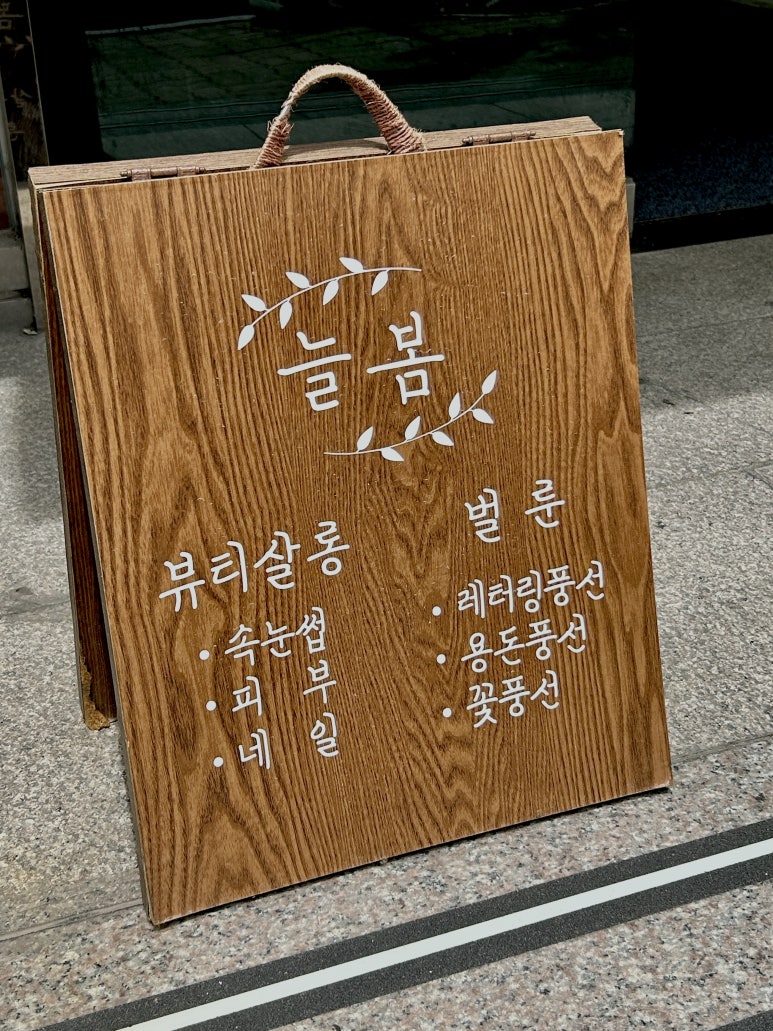 늘봄
뷰티살롱
• 속눈썹
• 피 부
• 네 일
벌룬
• 레터링풍선
• 용돈풍선
• 꽃풍선